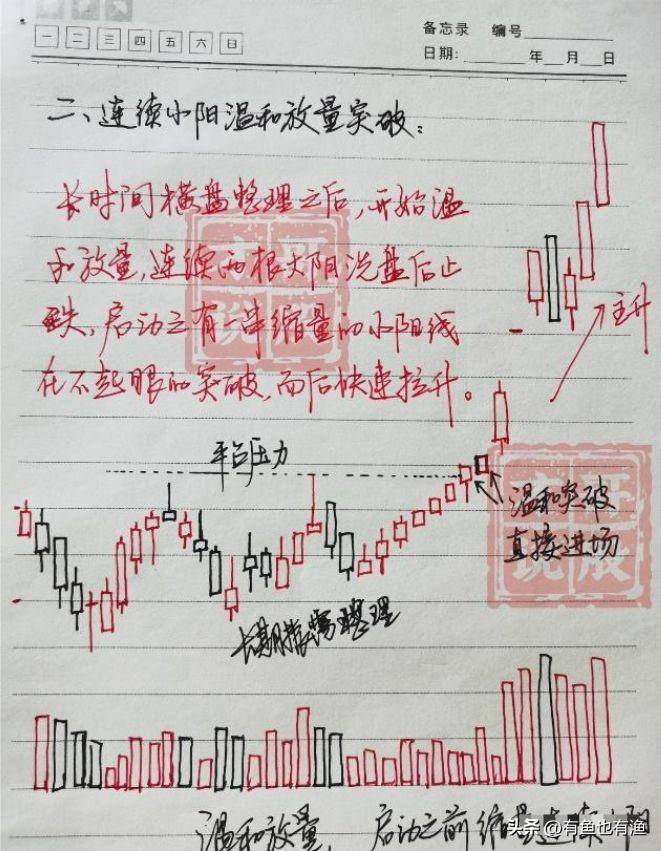 备忘录 编号
一 二 三 四 五 六 日
日期: 年 月 日
二、连续小阳温和放量突破:
长时间横盘整理之后,开始温
和放量,连续两根大阳洗盘后止
跌,启动之有一串缩量的小阳线
在不起眼的突破,而后快速拉升。
主升
平台压力
温和突破
直接进场
长期横盘整理
温和放量, 启动之前缩量连续小阳
头条 @有鱼也有渔